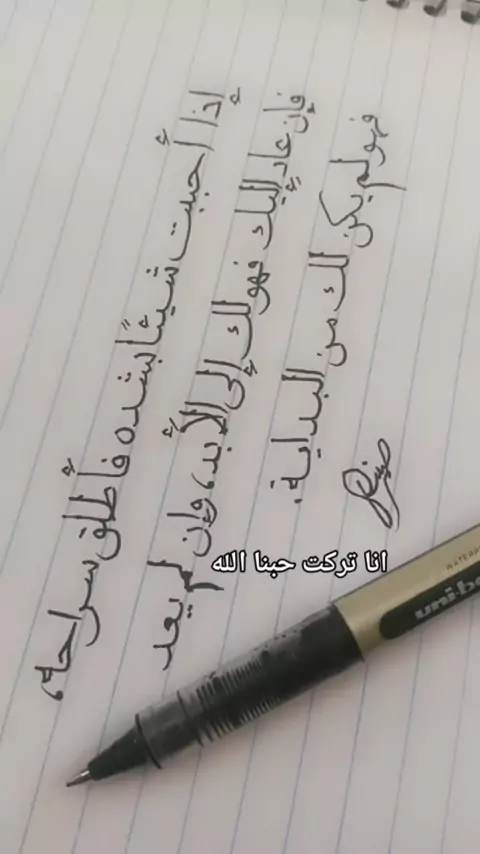 إذا أحببت شيئًا بشده فأطلق سراحه،
فإن عاد إليك فهو لك إلى الأبد، وإن لم يعد
فهو لم يكن لك من البداية.
انا تركت حبنا الله
WATERP
uni-b